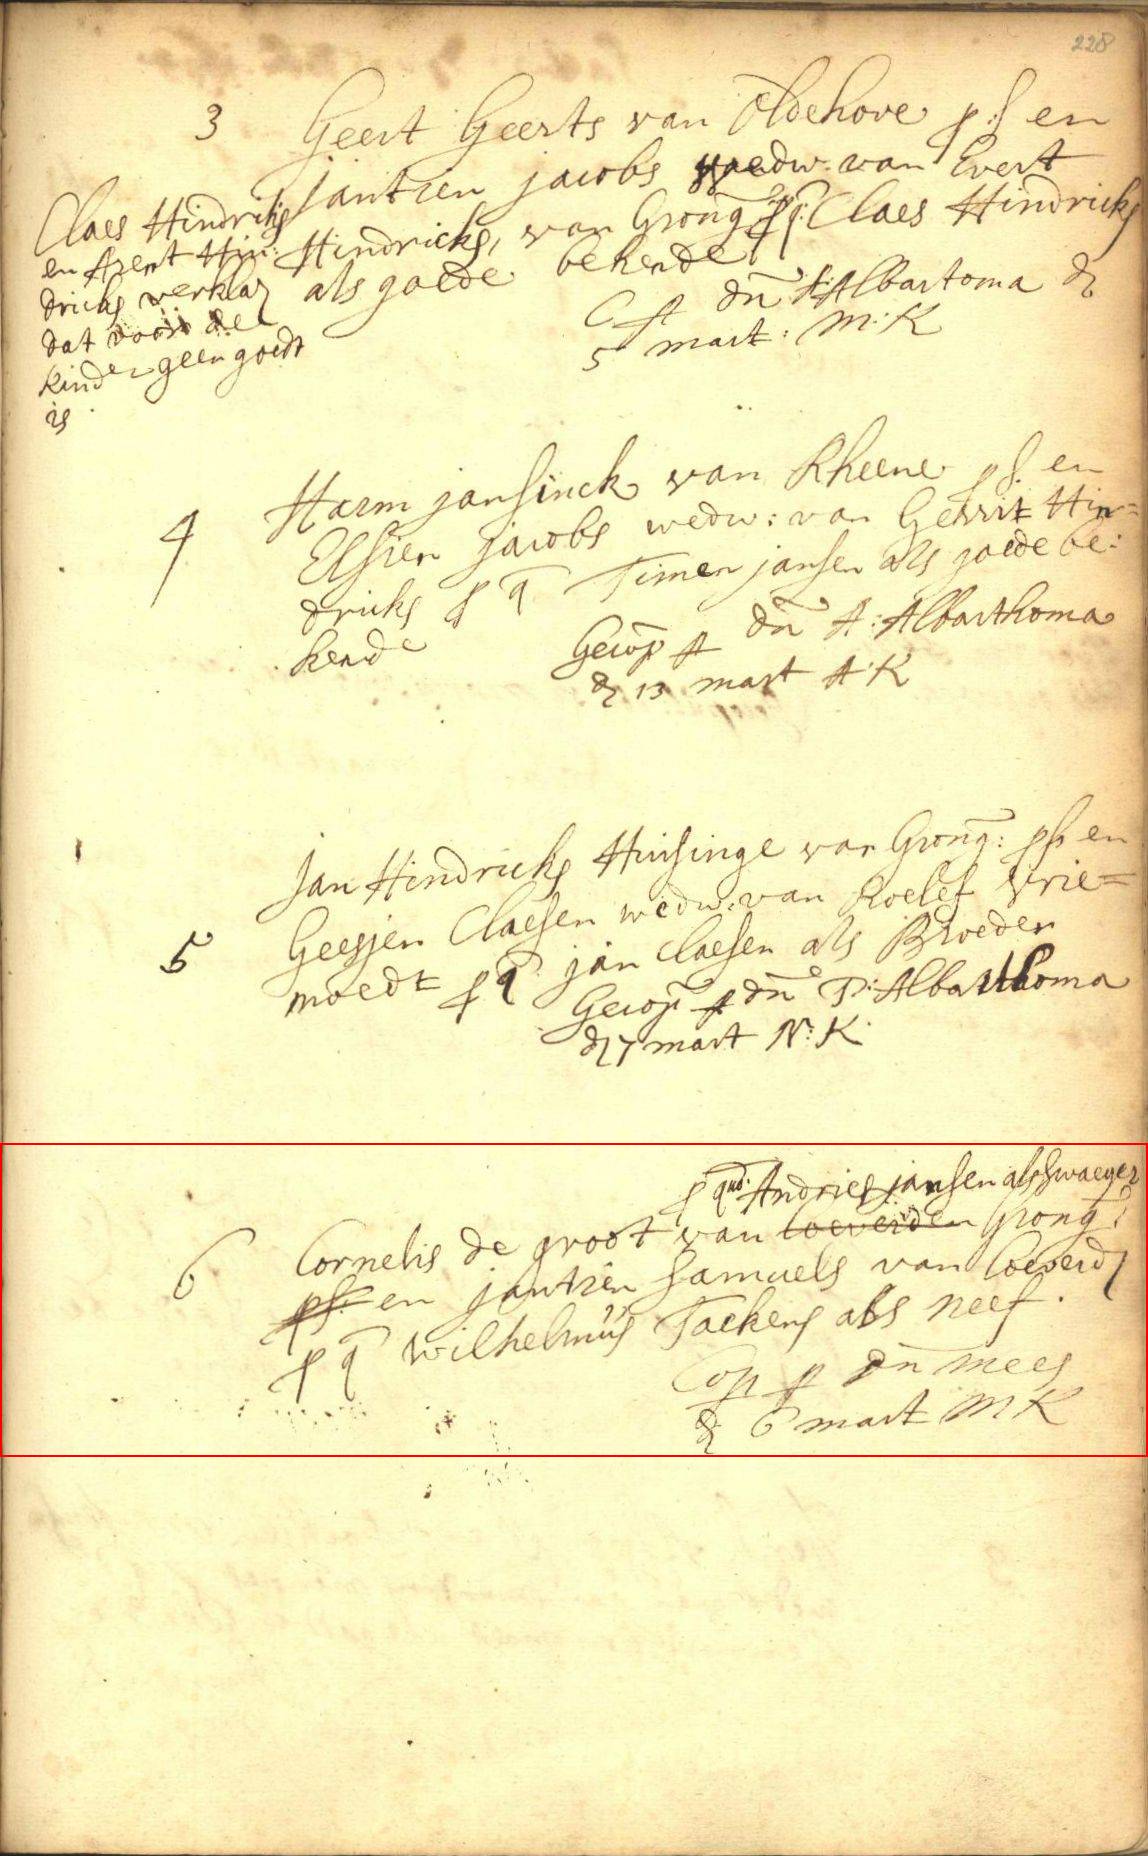 228
3 Geert Geerts van Oldehove p: s en
Jantien jacobs wedw. van Evert
Hindricks, van Grong p q: Claes Hindricks
als goede bekende
C p dn A: Albartoma d
5 mart: M: K
Claes Hindriks
en Arent Hin:
dricks verklar
dat voor de
kinder geen goedt
is.
4 Harm jansinck van Rheene p s. en
Elsien jacobs wedw: van Gerrit Hin=
dricks p q Timen jansen als goede be:
kende
Gecop p dn A: Albarthoma
d 13 mart A K
5 Jan Hindricks Huisinge van Grong: ps en
Geesjen Claesen wedw. van Roelef Vrie=
moedt p q jan Claesen als Broeder
Gecop p dn P: Albarthoma
d 7 mart N: K
p qud. Andries jansen als Swaeger
6 Cornelis de groot van Coeverden Grong:
ps: en jantien Samuels van Coeverd
p q wilhelmus Tackens als neef.
Cop p dn mees
d 6 mart M K